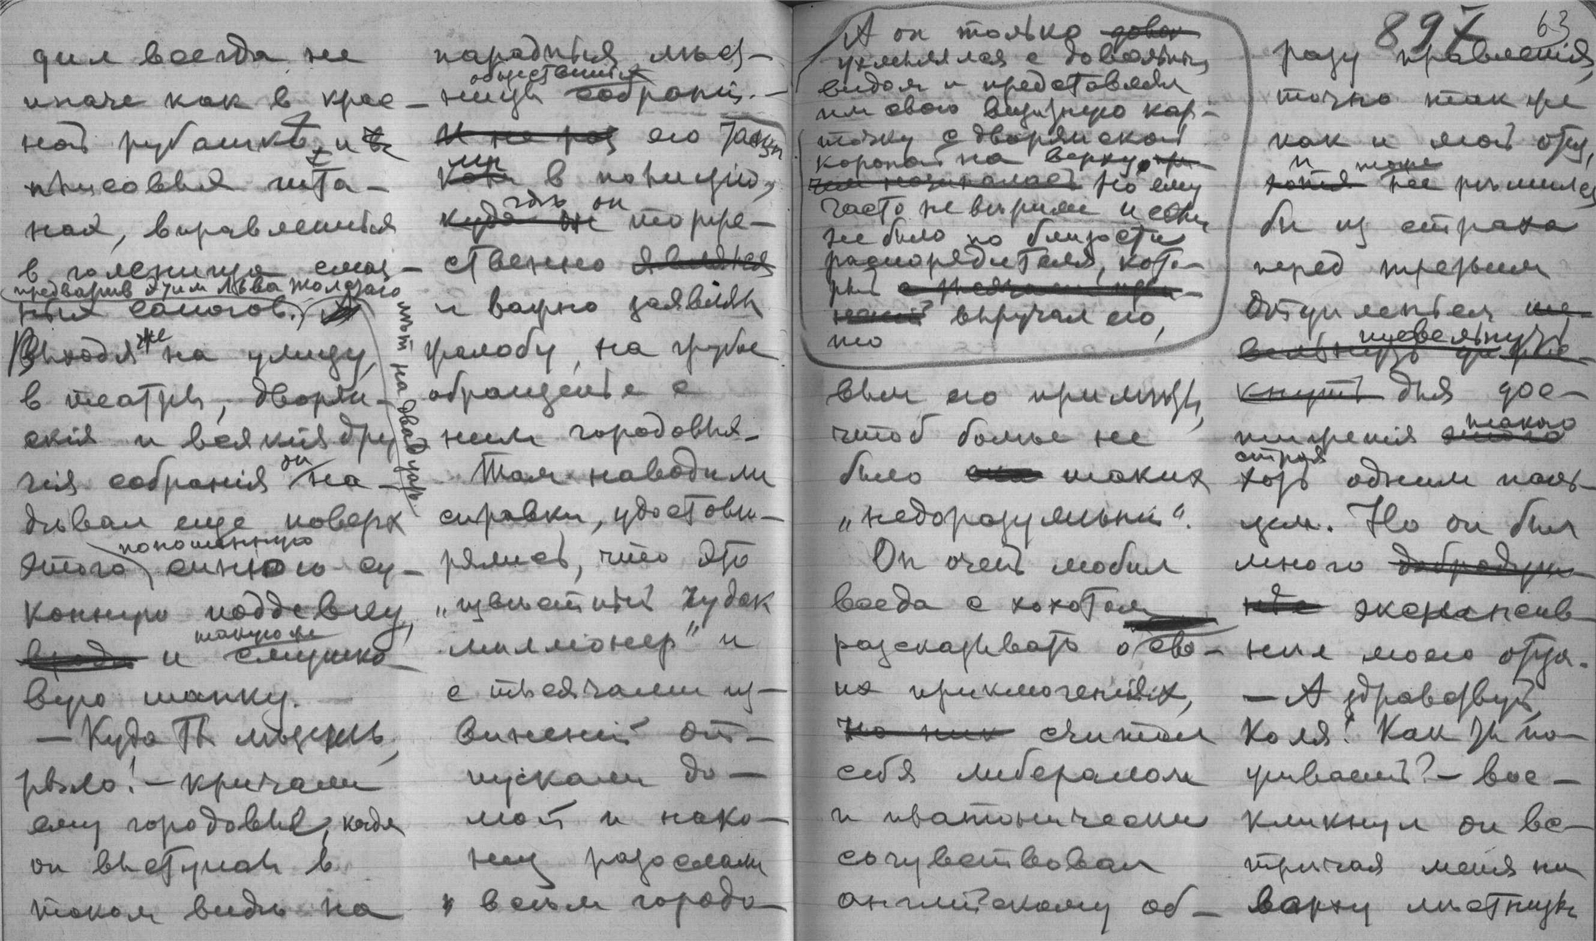 дил всегда не
иначе как в крас-
ной рубашке, и
плисовых шта-
нах, вправленных
в голенища смаз-
предварив этим Льва Толстого
ных сапогов.
лет на двадцать
Выходя же на улицу,
в театры, дворян-
ския и всякия дру
гия собрания он на-
девал еще поверх
поношенную
этого синюю су-
конную поддевку,
такую же
вроде и смушко-
вую шапку.
— Куда ты лезешь,
рыло! — кричали
ему городовые, когда
он вступал в
таком виде на
парадныя лест-
общественных
ницы собраний. —
И не раз его тащи
ли
в полицию,
где он
куда же торже-
ственно являлся
и важно заявлял
жалобу на грубое
обращенье с
ним городовых.
Там наводили
справки, удостове-
рялись, что это
„известный чудак
миллионер" и
с тысячами из-
винений от-
пускали до-
мой и нако-
нец разослали
по всем городо-
А он только
ухмылялся с довольным
видом и представлял
им свою визитную кар-
точку с дворянской
короной на верху
но ему
часто не верили и если
не было по близости
распорядителя, кото-
рый
выручал его,
то
897
63
вым его приметы,
чтоб больше не
было таких
„недоразумений".
Он очень любил
всегда с хохотом
разсказывать о сво-
их приключениях,
считал
себя либералом
и платонически
сочувствовал
английскому об-
разу правления,
точно так же
как и мой отец,
и тоже
хотя не решился
бы из страха
перед третьим
отделением
пошевельнуть
для дос-
тижения такого
строя
хоть одним паль-
цем. Но он был
много добродуш-
нее экспансив
нее моего отца.
— А здравствуй,
Коля! Как по-
живаешь? — вос-
кликнул он вс-
тречая меня на
верху лестницы